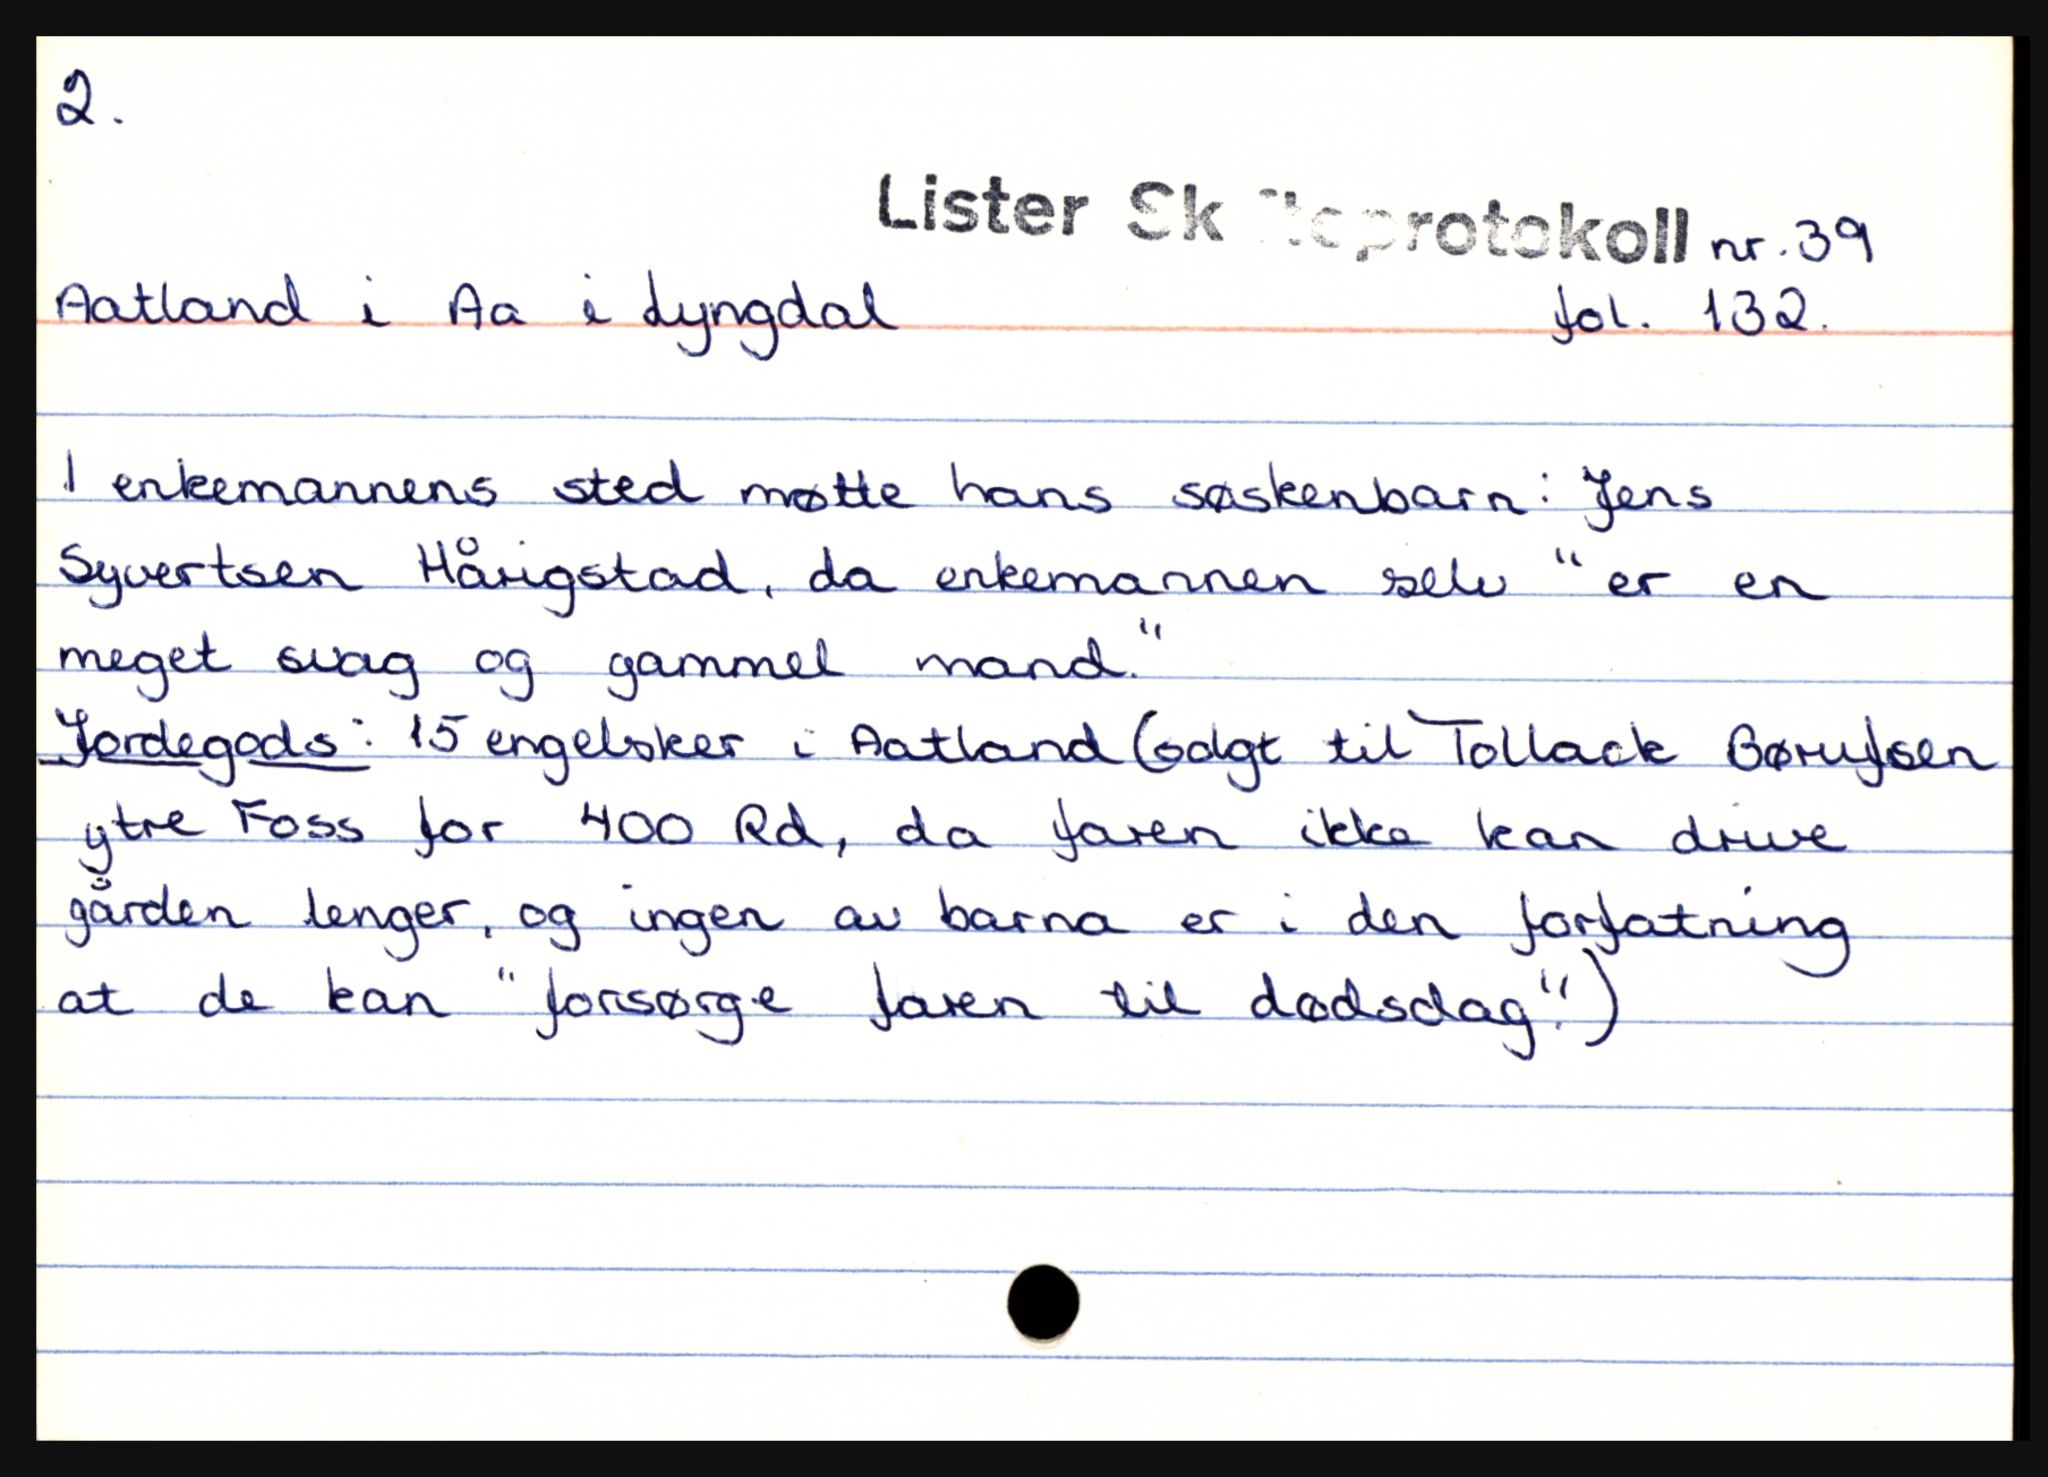 2.
Lister Skifteprotokoll nr. 39
Aatland i Aa i Lyngdal fol. 132.
I enkemannens sted møtte hans søskenbarn: Jens
Syvertsen Hårigstad, da enkemannen selv "er en
meget svag og gammel mand."
Jordegods: 15 engelsker i Aatland (solgt til Tollack Børufsen
ytre Foss for 400 Rd, da faren ikke kan drive
gården lenger, og ingen av barna er i den forfatning
at de kan "forsørge faren til dødsdag".)